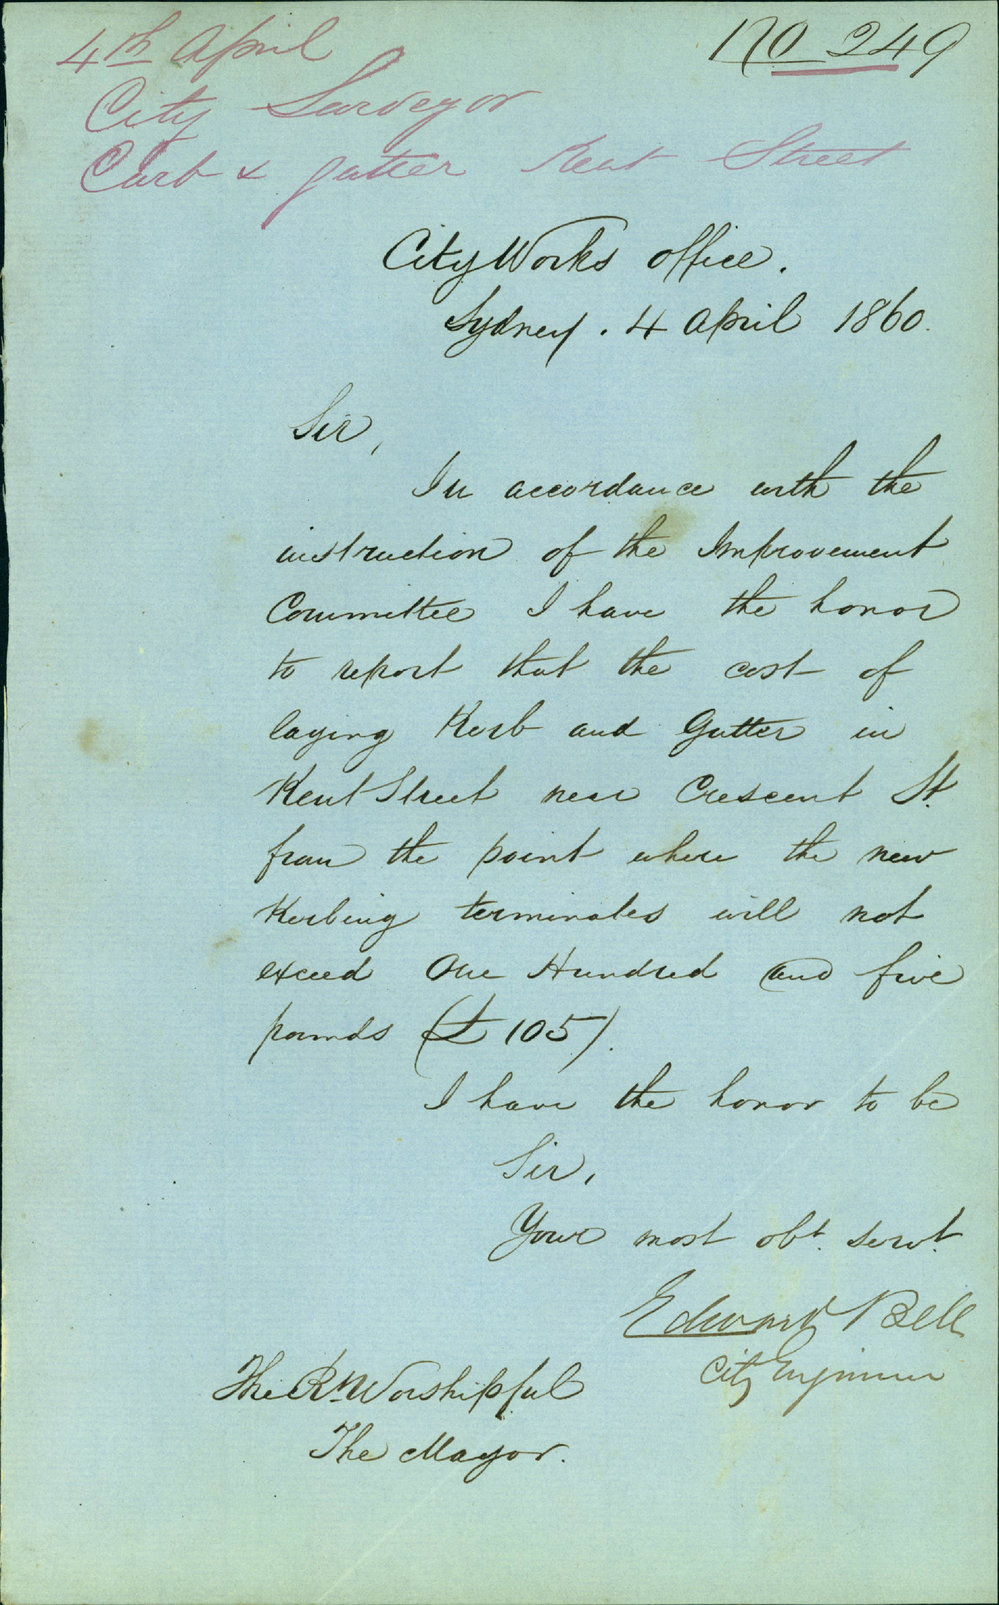 4th April
No 249
City Surveyor
Curb & gutter Kent Street
City Works office.
Sydney. 4 April 1860.
Sir,
In accordance with the
instruction of the Improvement
Committee I have the honor
to report that the cost of
laying Kerb and Gutter in
Kent Street near Crescent St.
from the point where the new
Kerbing terminates will not
exceed One Hundred and five
pounds (£105).
I have the honor to be
Sir,
Your most obt. servt.
Edward Bell
City Engineer
The Rt. Worshipful
The Mayor.